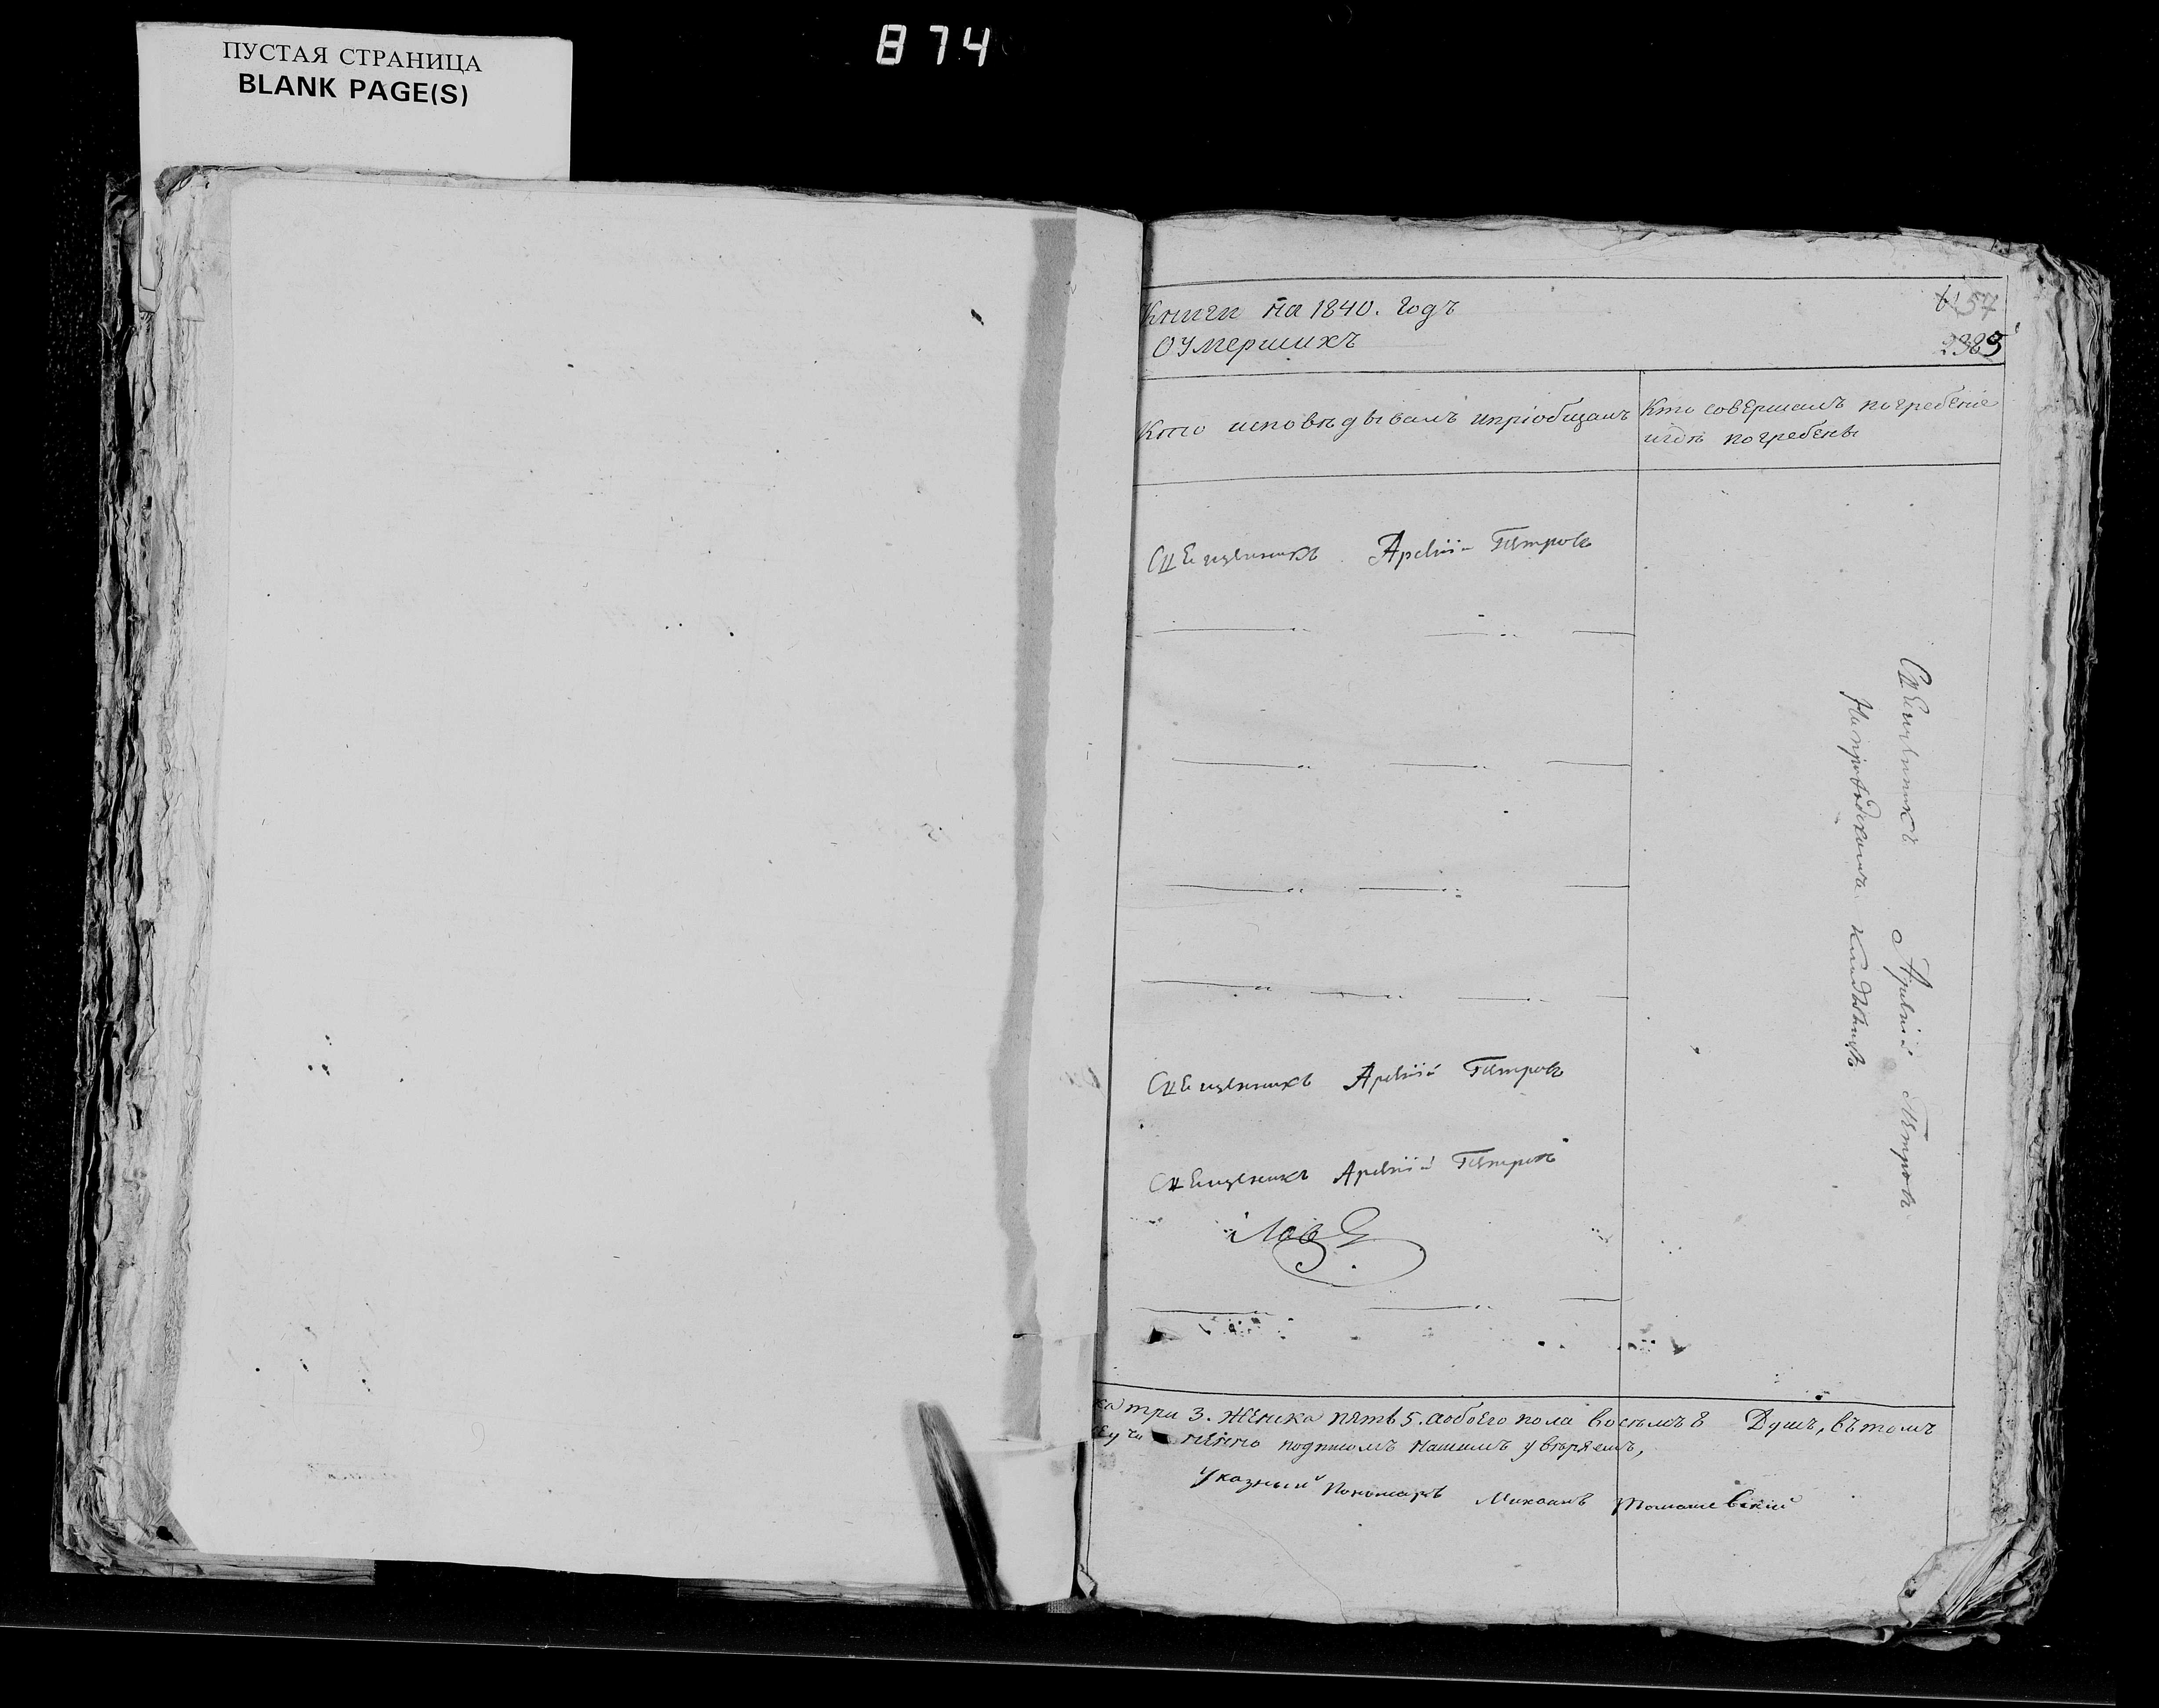 ПУСТАЯ СТРАНИЦА
BLANK PAGE(S)
874
Книги на 1840. Годъ
О Умершихъ
Кто исповѣдывалъ ипріобщалъ
Кто совершалъ погребеніе
игдѣ погребены
Священникъ Арсеній Петровъ
Священникъ Арсеній Петровъ
Священникъ Арсеній Петровъ
Священникъ Арсеній Петровъ
На приходскомъ кладбищѣ
ка три 3. женска пять 5. аобоего пола восьмъ 8 Душъ, вътомъ
подписомъ нашимъ увѣряемъ,
Указный Пономарь Михаилъ Томашевскій